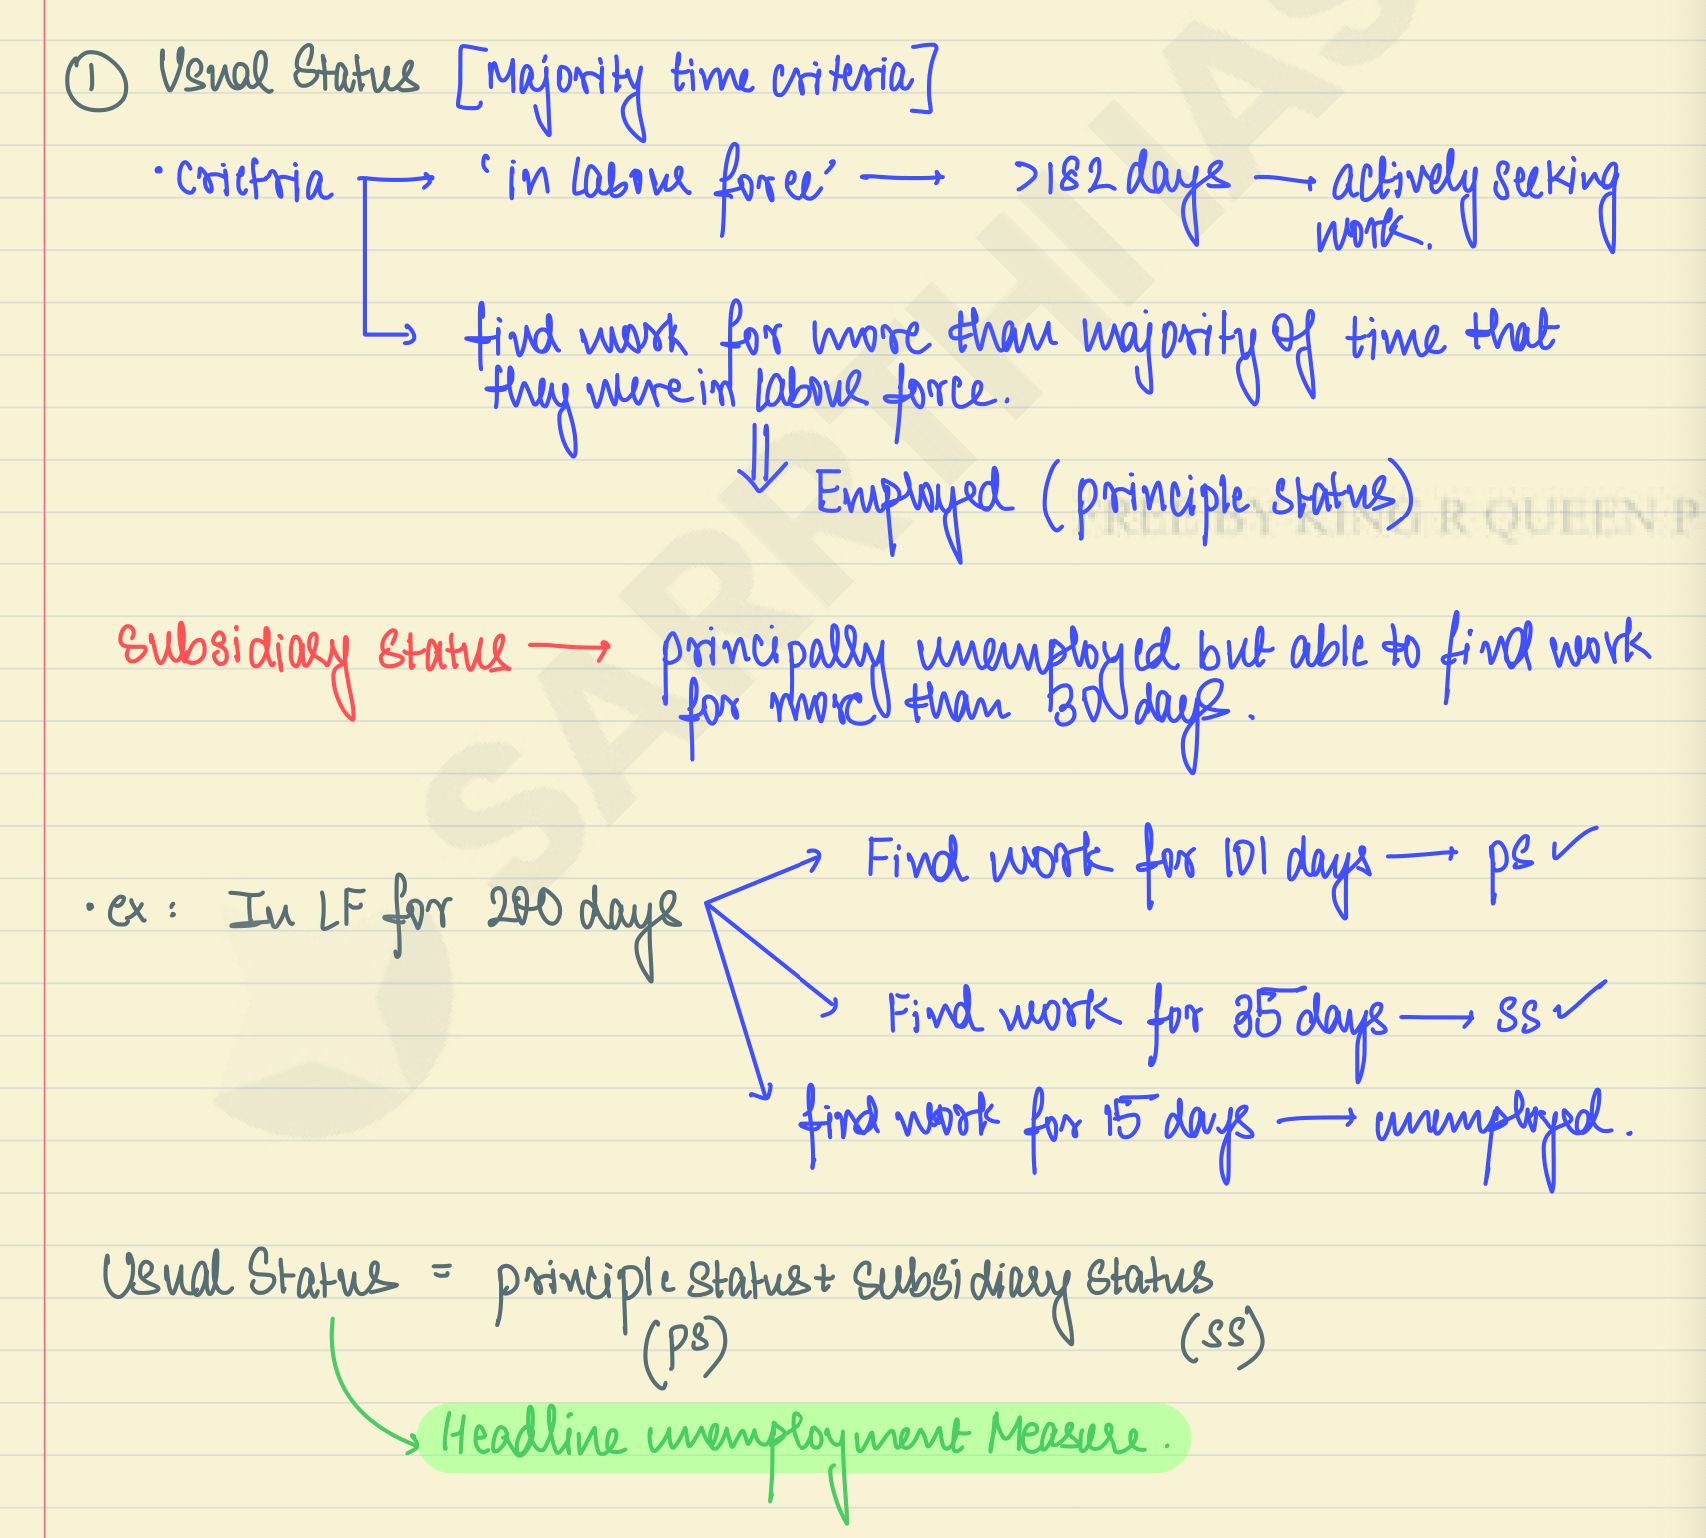 ① Usual Status [Majority time criteria]
• crietria → 'in labour force' → >182 days → actively seeking
work.
→ find work for more than majority of time that
they were in labour force.
⇓ Employed (principle status)
FREE BY KING R QUEEN P
Subsidiary Status → principally unemployed but able to find work
for more than 30 days.
Find work for 101 days → PS ✓
• ex: In LF for 200 days
Find work for 35 days → SS ✓
find work for 15 days → unemployed.
Usual Status = principle status + subsidiary status
(PS) (SS)
Headline unemployment Measure.
SARRTHI IAS